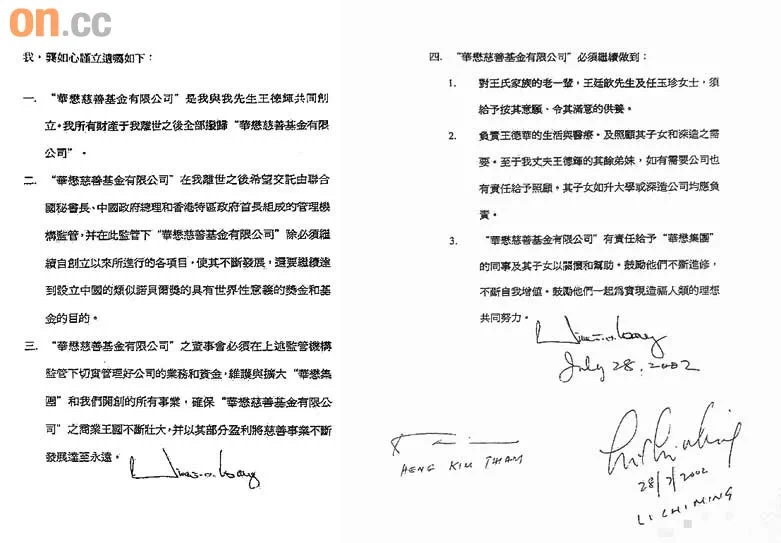 on.cc
我，龔如心謹立遺囑如下：
一. “華懋慈善基金有限公司”是我與我先生王德輝共同創
立。我所有財產于我離世之後全部撥歸“華懋慈善基金有限
公司”。
二. “華懋慈善基金有限公司”在我離世之後希望交託由聯合
國秘書長、中國政府總理和香港特區政府首長組成的管理機
構監管，并在此監管下“華懋慈善基金有限公司”除必須繼
續自創立以來所進行的各項目，使其不斷發展，還要繼續達
到設立中國的類似諾貝爾獎的具有世界性意義的獎金和基
金的目的。
三. “華懋慈善基金有限公司”之董事會必須在上述監管機構
監管下切實管理好公司的業務和資金，維護與擴大“華懋集
團”和我們開創的所有事業，確保“華懋慈善基金有限公
司”之商業王國不斷壯大，并以其部分盈利將慈善事業不斷
發展達至永遠。
四. “華懋慈善基金有限公司”必須繼續做到：
1. 對王氏家族的老一輩，王廷歆先生及任玉珍女士，須
給予按其意願、令其滿意的供養。
2. 負責王德華的生活與醫療。及照顧其子女和深造之需
要。至于我丈夫王德輝的其餘弟妹，如有需要公司也
有責任給予照顧。其子女如升大學或深造公司均應負
責。
3. “華懋慈善基金有限公司”有責任給予“華懋集團”
的同事及其子女以關懷和幫助。鼓勵他們不斷進修，
不斷自我增值。鼓勵他們一起爲實現造福人類的理想
共同努力。
July 28, 2002
HENG KIM THIAM
28/7/2002
LI CHI MING